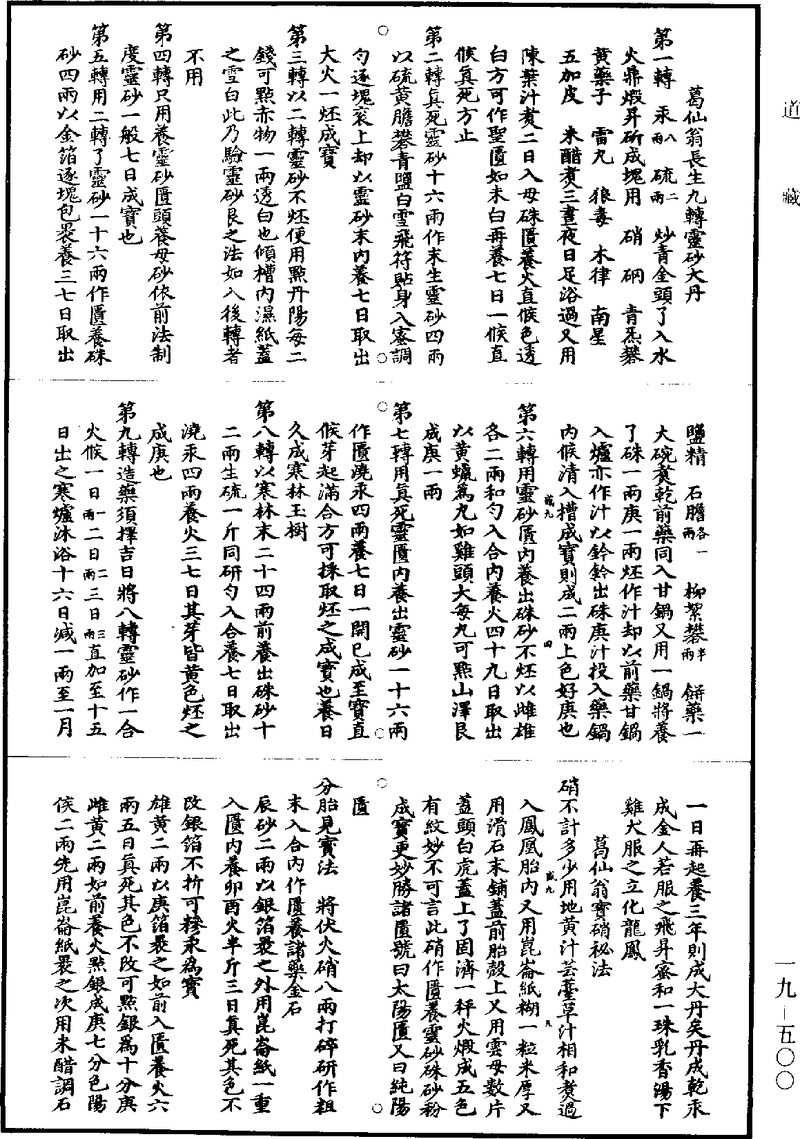 道藏
葛仙翁長生九轉靈砂大丹
第一轉 汞八兩 硫二兩 炒青金頭了入水
火鼎煅昇斫成塊用 硝 硇 青鹽礬
黃藥子 雷丸 狼毒 木律 南星
五加皮 米醋煮三晝夜日足浴過又用
陳葉汁煮二日入母硃匱養火直候色透
白方可作聖匱如未白再養七日一候直
候真死方止
第二轉真死靈砂十六兩作末生靈砂四兩
以硫黃膽礬青鹽白雪飛符貼身入蜜調
勻逐塊衮上却以靈砂末內養七日取出
大火一坯成寶
第三轉以二轉靈砂不坯便用點丹陽每二
錢可點赤物一兩透白也傾槽內濕紙蓋
之雪白此乃驗靈砂艮之法如入後轉者
不用
第四轉只用養靈砂匱頭養母砂依前法制
度靈砂一般七日成寶也
第五轉用二轉了靈砂一十六兩作匱養硃
砂四兩以金箔逐塊包裹養三七日取出
鹽精 石膽各一兩 柳絮礬半兩 餅藥一
大碗煮乾前藥同入甘鍋又用一鍋將養
了硃一兩庚一兩坯作汁却以前藥甘鍋
入爐亦作汁以鈐鈐出硃庚汁投入藥鍋
內候清入槽成寶則成二兩上色好庚也
第六轉用靈砂匱內養出硃砂不坯以雌雄
各二兩和勻入合內養火四十九日取出
以黃蠟為丸如雞頭大每丸可點山澤艮
成庚一兩
第七轉用真死靈匱內養出靈砂一十六兩
作匱澆汞四兩養七日一開已成至寶直
候芽起滿合方可採取坯之成寶也養日
久成寒林玉樹
第八轉以寒林末二十四兩前養出硃砂十
二兩生硫一斤同研勻入合養七日取出
澆汞四兩養火三七日其芽皆黃色坯之
成庚也
第九轉造藥須擇吉日將八轉靈砂作一合
火候一日一兩二日二兩三日三兩直加至十五
日出之寒爐沐浴十六日減一兩至一月
一日再起養三年則成大丹矣丹成乾汞
成金人若服之飛昇蜜和一珠乳香湯下
雞犬服之立化龍鳳
葛仙翁寶硝秘法
硝不計多少用地黃汁芸薹草汁相和煮過
入鳳凰胎內又用崑崙紙糊一粒米厚又
用滑石末鋪蓋前胎殼上又用雲母數片
蓋頭白虎蓋上了固濟一秤火煅成五色
有紋妙不可言此硝作匱養靈砂硃砂粉
成寶更妙勝諸匱號曰太陽匱又曰純陽
匱
分胎見寶法 將伏火硝八兩打碎研作粗
末入合內作匱養諸藥金石
辰砂二兩以銀箔裹之外用崑崙紙一重
入匱內養卯酉火半斤三日真死其色不
改銀箔不折可糝汞為寶
雄黃二兩以庚箔裹之如前入匱養火六
兩五日真死其色不改可點銀為十分庚
雌黃二兩如前養火點銀成庚七分色陽
侯二兩先用崑崙紙裹之次用米醋調石
一九－五〇〇